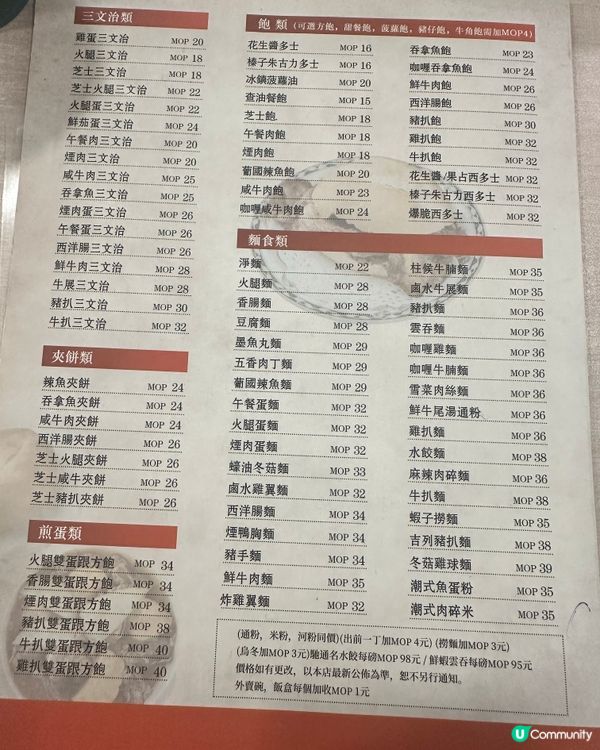 三文治類
雞蛋三文治 MOP 20
火腿三文治 MOP 18
芝士三文治 MOP 18
芝士火腿三文治 MOP 22
火腿蛋三文治 MOP 22
鮮茄蛋三文治 MOP 24
午餐肉三文治 MOP 20
煙肉三文治 MOP 20
咸牛肉三文治 MOP 25
吞拿魚三文治 MOP 25
煙肉蛋三文治 MOP 26
午餐蛋三文治 MOP 26
西洋腸三文治 MOP 26
鮮牛肉三文治 MOP 28
牛展三文治 MOP 28
豬扒三文治 MOP 30
牛扒三文治 MOP 32
夾餅類
辣魚夾餅 MOP 24
吞拿魚夾餅 MOP 24
咸牛肉夾餅 MOP 24
西洋腸夾餅 MOP 26
芝士火腿夾餅 MOP 26
芝士咸牛夾餅 MOP 26
芝士豬扒夾餅 MOP 26
煎蛋類
火腿雙蛋跟方飽 MOP 34
香腸雙蛋跟方飽 MOP 34
煙肉雙蛋跟方飽 MOP 34
豬扒雙蛋跟方飽 MOP 38
牛扒雙蛋跟方飽 MOP 40
雞扒雙蛋跟方飽 MOP 40
飽類 (可選方飽, 甜餐飽, 菠蘿飽, 豬仔飽, 牛角飽需加MOP4)
花生醬多士 MOP 16
榛子朱古力多士 MOP 16
冰鎮菠蘿油 MOP 20
查油餐飽 MOP 15
芝士飽 MOP 18
午餐肉飽 MOP 18
煙肉飽 MOP 18
葡國辣魚飽 MOP 20
咸牛肉飽 MOP 23
咖喱咸牛肉飽 MOP 24
吞拿魚飽 MOP 23
咖喱吞拿魚飽 MOP 24
鮮牛肉飽 MOP 26
西洋腸飽 MOP 26
豬扒飽 MOP 30
雞扒飽 MOP 32
牛扒飽 MOP 32
花生醬/果占西多士 MOP 32
榛子朱古力西多士 MOP 32
爆脆西多士 MOP 32
麵食類
淨麵 MOP 22
火腿麵 MOP 28
香腸麵 MOP 28
豆腐麵 MOP 28
墨魚丸麵 MOP 29
五香肉丁麵 MOP 29
葡國辣魚麵 MOP 29
午餐蛋麵 MOP 32
火腿蛋麵 MOP 32
煙肉蛋麵 MOP 32
蠔油冬菇麵 MOP 33
鹵水雞翼麵 MOP 32
西洋腸麵 MOP 34
煙鴨胸麵 MOP 34
豬手麵 MOP 34
鮮牛肉麵 MOP 35
炸雞翼麵 MOP 32
柱侯牛腩麵 MOP 35
鹵水牛展麵 MOP 35
豬扒麵 MOP 36
雲吞麵 MOP 36
咖喱雞麵 MOP 36
咖喱牛腩麵 MOP 36
雪菜肉絲麵 MOP 36
鮮牛尾湯通粉 MOP 36
雞扒麵 MOP 36
水餃麵 MOP 38
麻辣肉碎麵 MOP 36
牛扒麵 MOP 38
蝦子撈麵 MOP 35
吉列豬扒麵 MOP 38
冬菇雞球麵 MOP 39
潮式魚蛋粉 MOP 35
潮式肉碎米 MOP 35
(通粉, 米粉, 河粉同價)(出前一丁加MOP 4元) (撈麵加MOP 3元)
(烏冬加MOP 3元)馳通名水餃每磅MOP 98元 / 鮮蝦雲吞每磅MOP 95元
價格如有更改, 以本店最新公佈為準, 恕不另行通知。
外賣碗, 飯盒每個加收MOP 1元
U Community